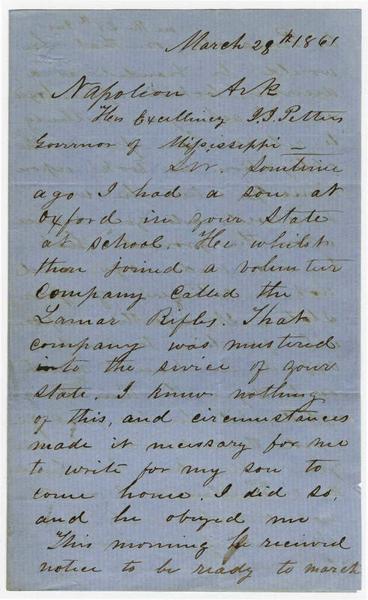 March 28th 1861
Napoleon Ark
His Excellency J.J. Pettus
Governor of Mississippi —
Sir. Sometime
ago I had a son at
Oxford in your State
at school. He whilst
then joined a volunteer
Company called the
Lamar Rifles. That
company was mustered
into the sivice of your
State. I knew nothing
of this, and circumstances
made it necessary for me
to write for my son to
come home. I did so,
and he obeyed me
This morning he received
notice to be ready to march